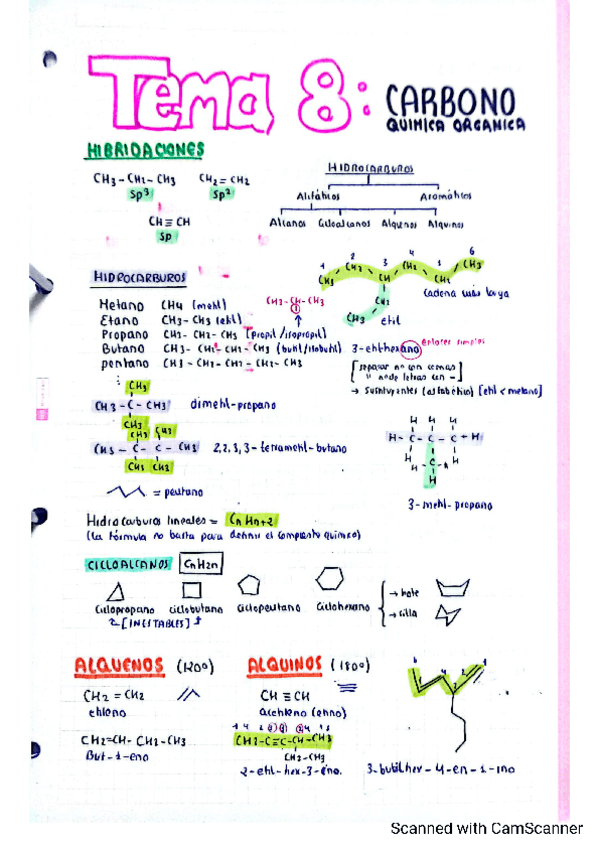 Tema 8: CARBONO
QUIMICA ORGANICA
HIBRIDACIONES
CH3 - CH2 - CH3 CH2 = CH2
Sp3 Sp2
CH ≡ CH
Sp
HIDROCARBUROS
Alifáticos Aromáticos
Alcanos Cicloalcanos Alquenos Alquinos
HIDROCARBUROS
Metano CH4 (metil)
Etano CH3 - CH3 (etil)
Propano CH3 - CH2 - CH3 (propil / isopropil)
Butano CH3 - CH2 - CH2 - CH3 (butil/isobutil)
pentano CH3 - CH2 - CH2 - CH2 - CH3
CH3 - CH - CH3
1 2 3 4 5 6
CH3 CH2 CH CH2 CH2 CH3
CH2
CH3 etil
cadena más larga
3-etil-hexano enlaces simples
[separar no con comas
" no de letras con -]
→ Sustituyentes (alfabético) [etil < metano]
CH3
CH3 - C - CH3 dimetil-propano
CH3
CH3 CH3
CH3 - C - C - CH3 2,2,3,3-tetrametil-butano
CH3 CH3
H H H
H - C - C - C + H
H H
H - C - H
H
3-metil-propano
= pentano
Hidrocarburos lineales = CnHn+2
(la fórmula no basta para definir el compuesto químico)
CICLOALCANOS CnH2n
Ciclopropano ciclobutano Ciclopentano Ciclohexano
[INESTABLES]
→ bote
→ silla
ALQUENOS (120º) ALQUINOS (180º)
CH2 = CH2
etileno
CH ≡ CH
Acetileno (etino)
CH2=CH- CH2-CH3
But-1-eno
CH3-C≡C-CH-CH3
CH2-CH3
2-etil-hex-3-ino.
3-butilhex-4-en-1-ino
Scanned with CamScanner